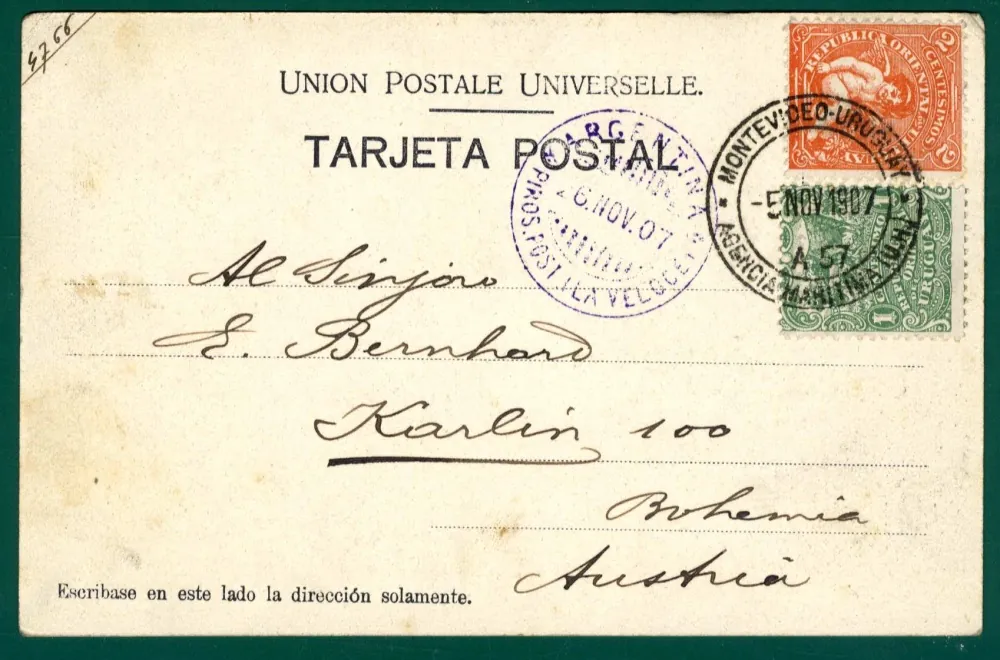 4766
UNION POSTALE UNIVERSELLE.
TARJETA POSTAL
REPUBLICA ORIENTAL
2 CENTESIMOS 2
MONTEVIDEO-URUGUAY
-5 NOV 1907
A. 57
AGENCIA MARITIMA
1
URUGUAY
ARGENTINA
26.NOV.07
PIROS. POST. LA VELOCE
Al Sinjoro
E. Bernhard
Karlín 100
Bohemia
Austria
Escribase en este lado la dirección solamente.